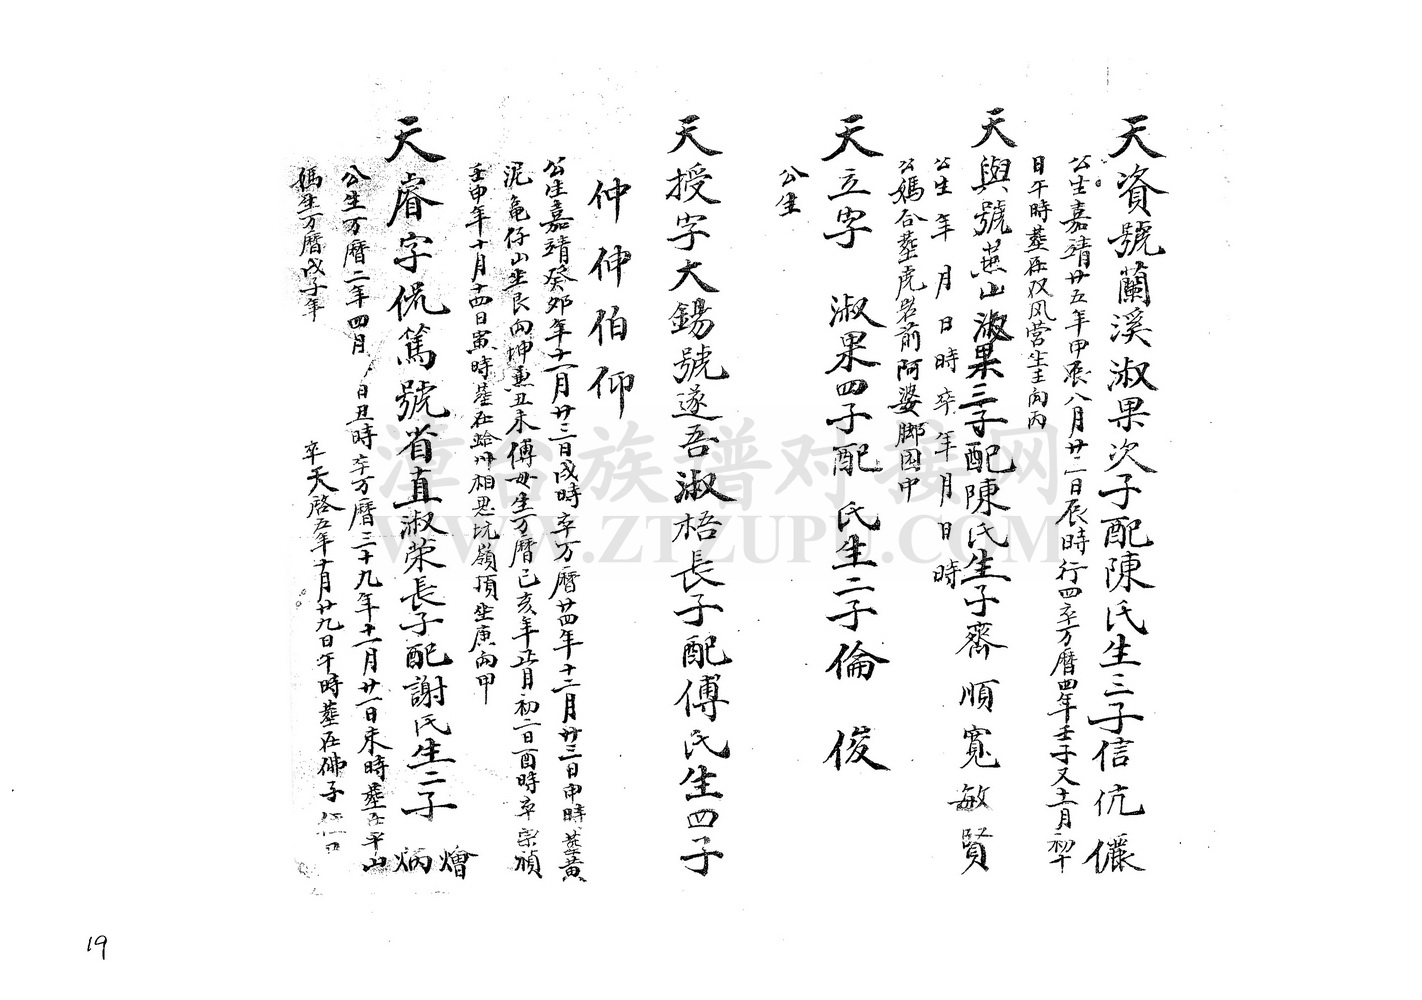 天資號蘭溪淑果次子配陳氏生三子信伉儼
公生嘉靖廿五年甲辰八月廿二日辰時行四卒万曆四年壬子又十二月初十
日午時塟在双凤营生壬向丙
天與號燕山淑果三子配陳氏生子齋順寬敏賢
公生年月日時卒年月日時
公媽合塟虎岩前阿婆脚囷中
天立字 淑果四子配 氏生二子倫俊
公生
天授字大錫號遂吾淑梧長子配傅氏生四子
仲伸伯仰
公生嘉靖癸卯年十一月廿三日戌時卒万曆廿四年十二月廿三日申時塟黄
泥龜仔山坐艮向坤兼丑未傅母生万曆己亥年正月初二日酉時卒崇禎
壬申年十月十四日寅時塟在蛤州相思坑嶺頂坐庚向甲
天睿字侃篤號省直淑荣長子配謝氏生二子燴炳
公生万曆二年四月 日丑時卒万曆三十九年十一月廿一日未時塟在平山
媽生万曆戊子年 卒天啓五年十月廿九日午時塟在佛子
漳台族譜对接网
WWW.ZTZUPU.COM
19